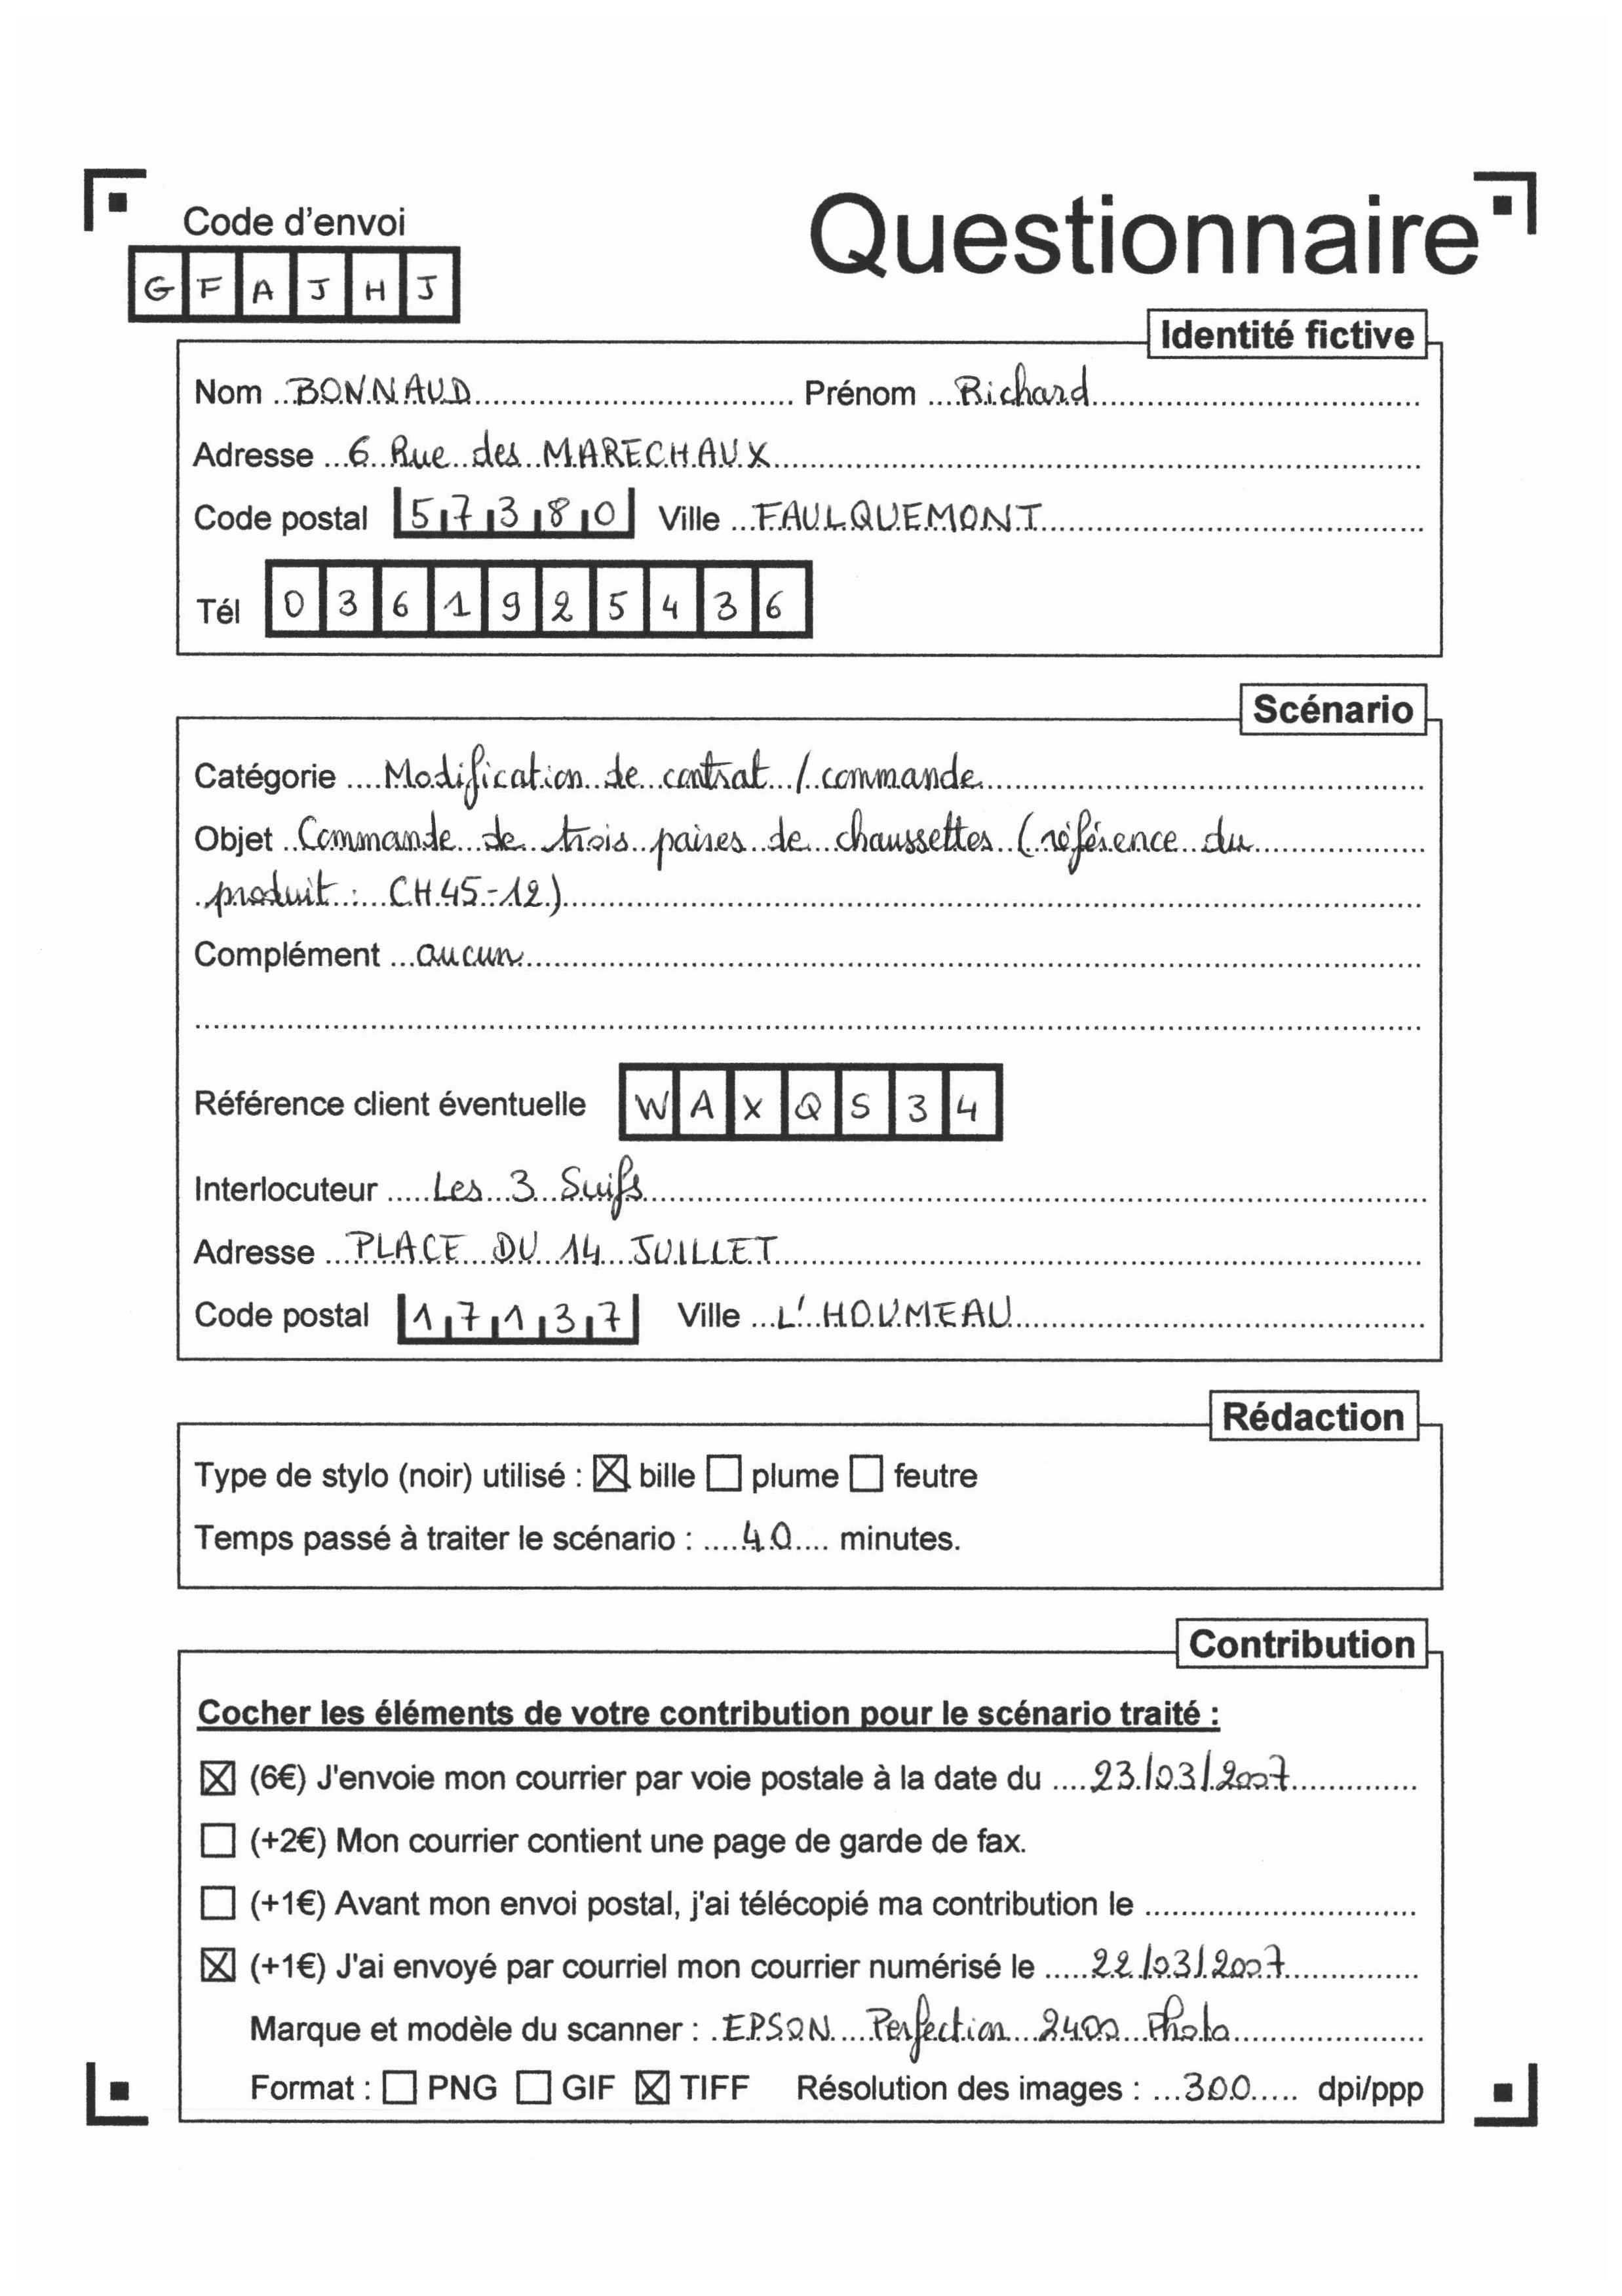 Code d'envoi
Questionnaire
GFAJHJ
Identité fictive
Nom BONNAUD Prénom Richard
Adresse 6 Rue des MARECHAUX
Code postal 57380 Ville FAULQUEMONT
Tél 0361925436
Scénario
Catégorie Modification de contrat / commande
Objet Commande de trois paires de chaussettes (référence du
produit : CH45-12)
Complément aucun
Référence client éventuelle WAXQS34
Interlocuteur Les 3 Suifs
Adresse PLACE DU 14 JUILLET
Code postal 17137 Ville L'HOUMEAU
Rédaction
Type de stylo (noir) utilisé : ☒ bille ☐ plume ☐ feutre
Temps passé à traiter le scénario : 40 minutes.
Contribution
Cocher les éléments de votre contribution pour le scénario traité :
☒ (6€) J'envoie mon courrier par voie postale à la date du 23/03/2007
☐ (+2€) Mon courrier contient une page de garde de fax.
☐ (+1€) Avant mon envoi postal, j'ai télécopié ma contribution le
☒ (+1€) J'ai envoyé par courriel mon courrier numérisé le 22/03/2007
Marque et modèle du scanner : EPSON Perfection 2400 Photo
Format : ☐ PNG ☐ GIF ☒ TIFF Résolution des images : 300 dpi/ppp